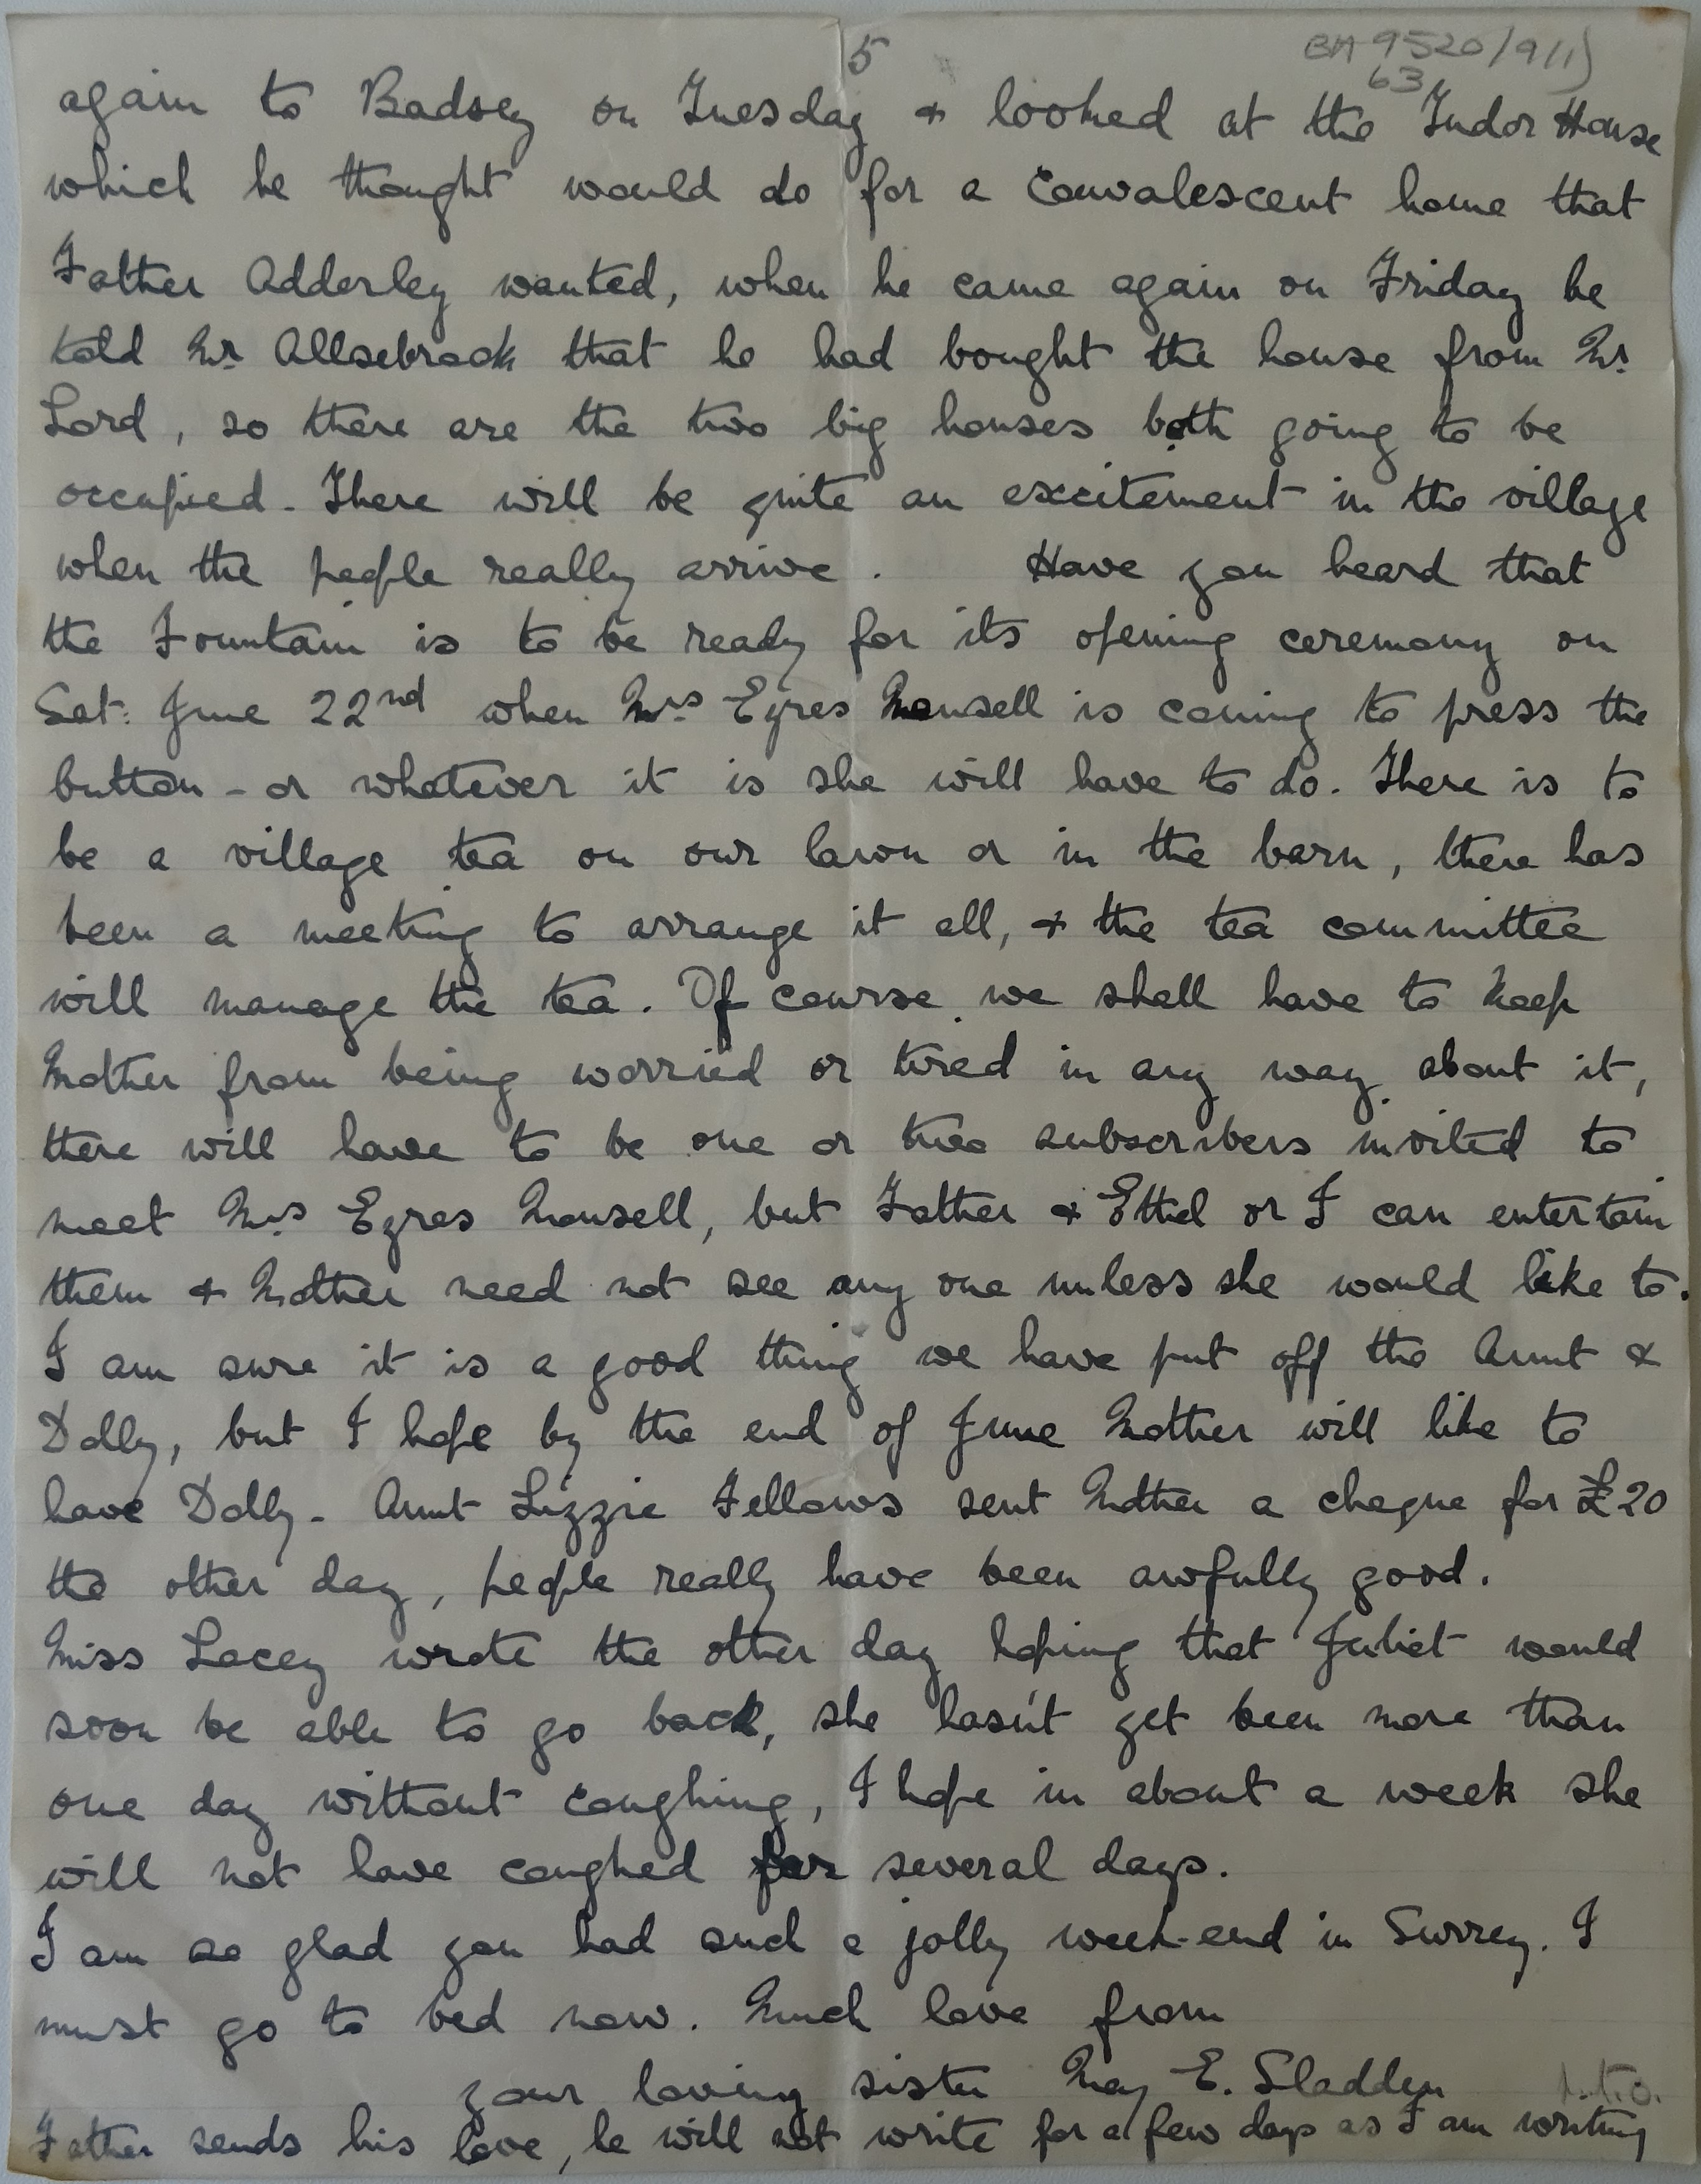 5
BA 9520/9(1)
63
again to Badsey on Tuesday & looked at the Tudor House
which he thought would do for a convalescent home that
Father Adderley wanted, when he came again on Friday he
told Mr. Allsebrook that he had bought the house from Mr.
Lord, so there are the two big houses both going to be
occupied. There will be quite an excitement in the village
when the people really arrive. Have you heard that
the Fountain is to be ready for its opening ceremony on
Sat: June 22nd when Mrs Eyres Monsell is coming to press the
button - or whatever it is she will have to do. There is to
be a village tea on our lawn or in the barn, there has
been a meeting to arrange it all, & the tea committee
will manage the tea. Of course we shall have to keep
Mother from being worried or tired in any way about it,
there will have to be one or two subscribers invited to
meet Mrs Eyres Monsell, but Father & Ethel or I can entertain
them & Mother need not see any one unless she would like to.
I am sure it is a good thing we have put off the Aunt &
Dolly, but I hope by the end of June Mother will like to
have Dolly. Aunt Lizzie Fellows sent Mother a cheque for £20
the other day, people really have been awfully good.
Miss Lacey wrote the other day hoping that Juliet would
soon be able to go back, she hasn't yet been more than
one day without coughing, I hope in about a week she
will not have coughed for several days.
I am so glad you had such a jolly week-end in Surrey. I
must go to bed now. Much love from
your loving sister May E. Sladden
P.T.O.
Father sends his love, he will not write for a few days as I am writing